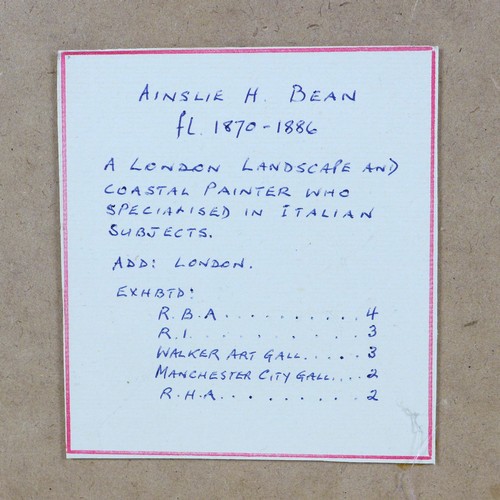 AINSLIE H. BEAN
fL. 1870-1886
A LONDON LANDSCAPE AND
COASTAL PAINTER WHO
SPECIALISED IN ITALIAN
SUBJECTS.
ADD: LONDON.
EXHBTD:
R.B.A.......... 4
R.I........... 3
WALKER ART GALL..... 3
MANCHESTER CITY GALL.... 2
R.H.A.......... 2